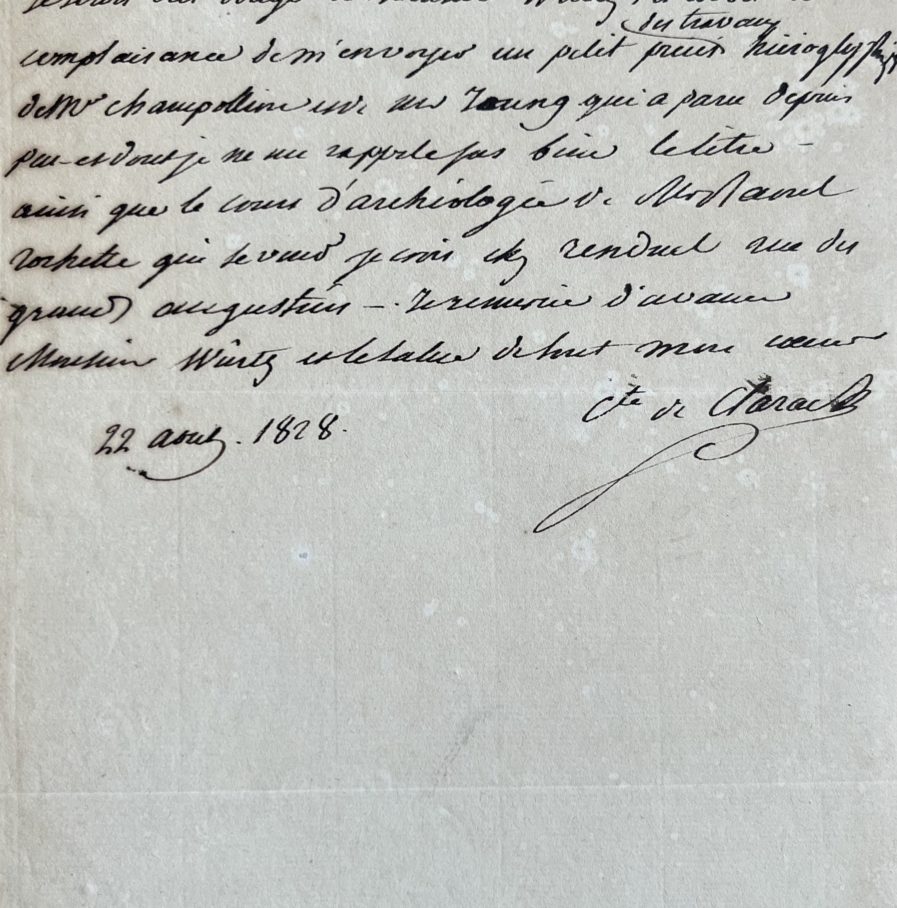 des travaux
complaisance de m'envoyer un petit precis hieroglyphiq
de Mr champollion et de mr Young qui a paru depuis
peu et dont je ne me rappele pas bien le titre –
ainsi que le cours d'archéologie de Mr Raoul
rochette qui se vend je crois chez renduel rue des
grands augustins –. Je remercie d'avance
Monsieur Würtz et le salue de tout mon coeur
Cte de Clarac
22 aout. 1828.